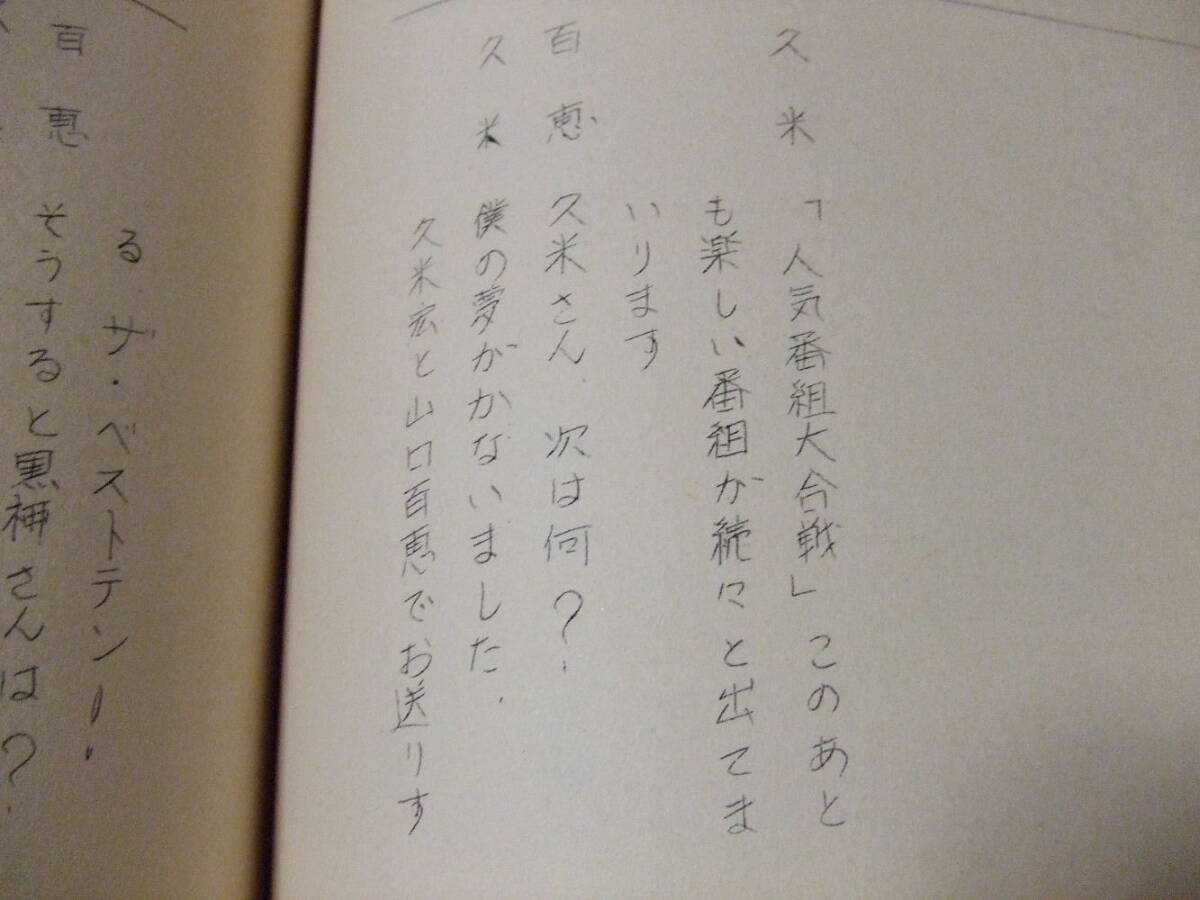 久米　「人気番組大合戦」このあと
も楽しい番組が続々と出てま
いります
百恵　久米さん、次は何？
久米　僕の夢がかないました。
久米宏と山口百恵でお送りす
る ザ・ベストテン！
百恵　そうすると黒柳さんは？